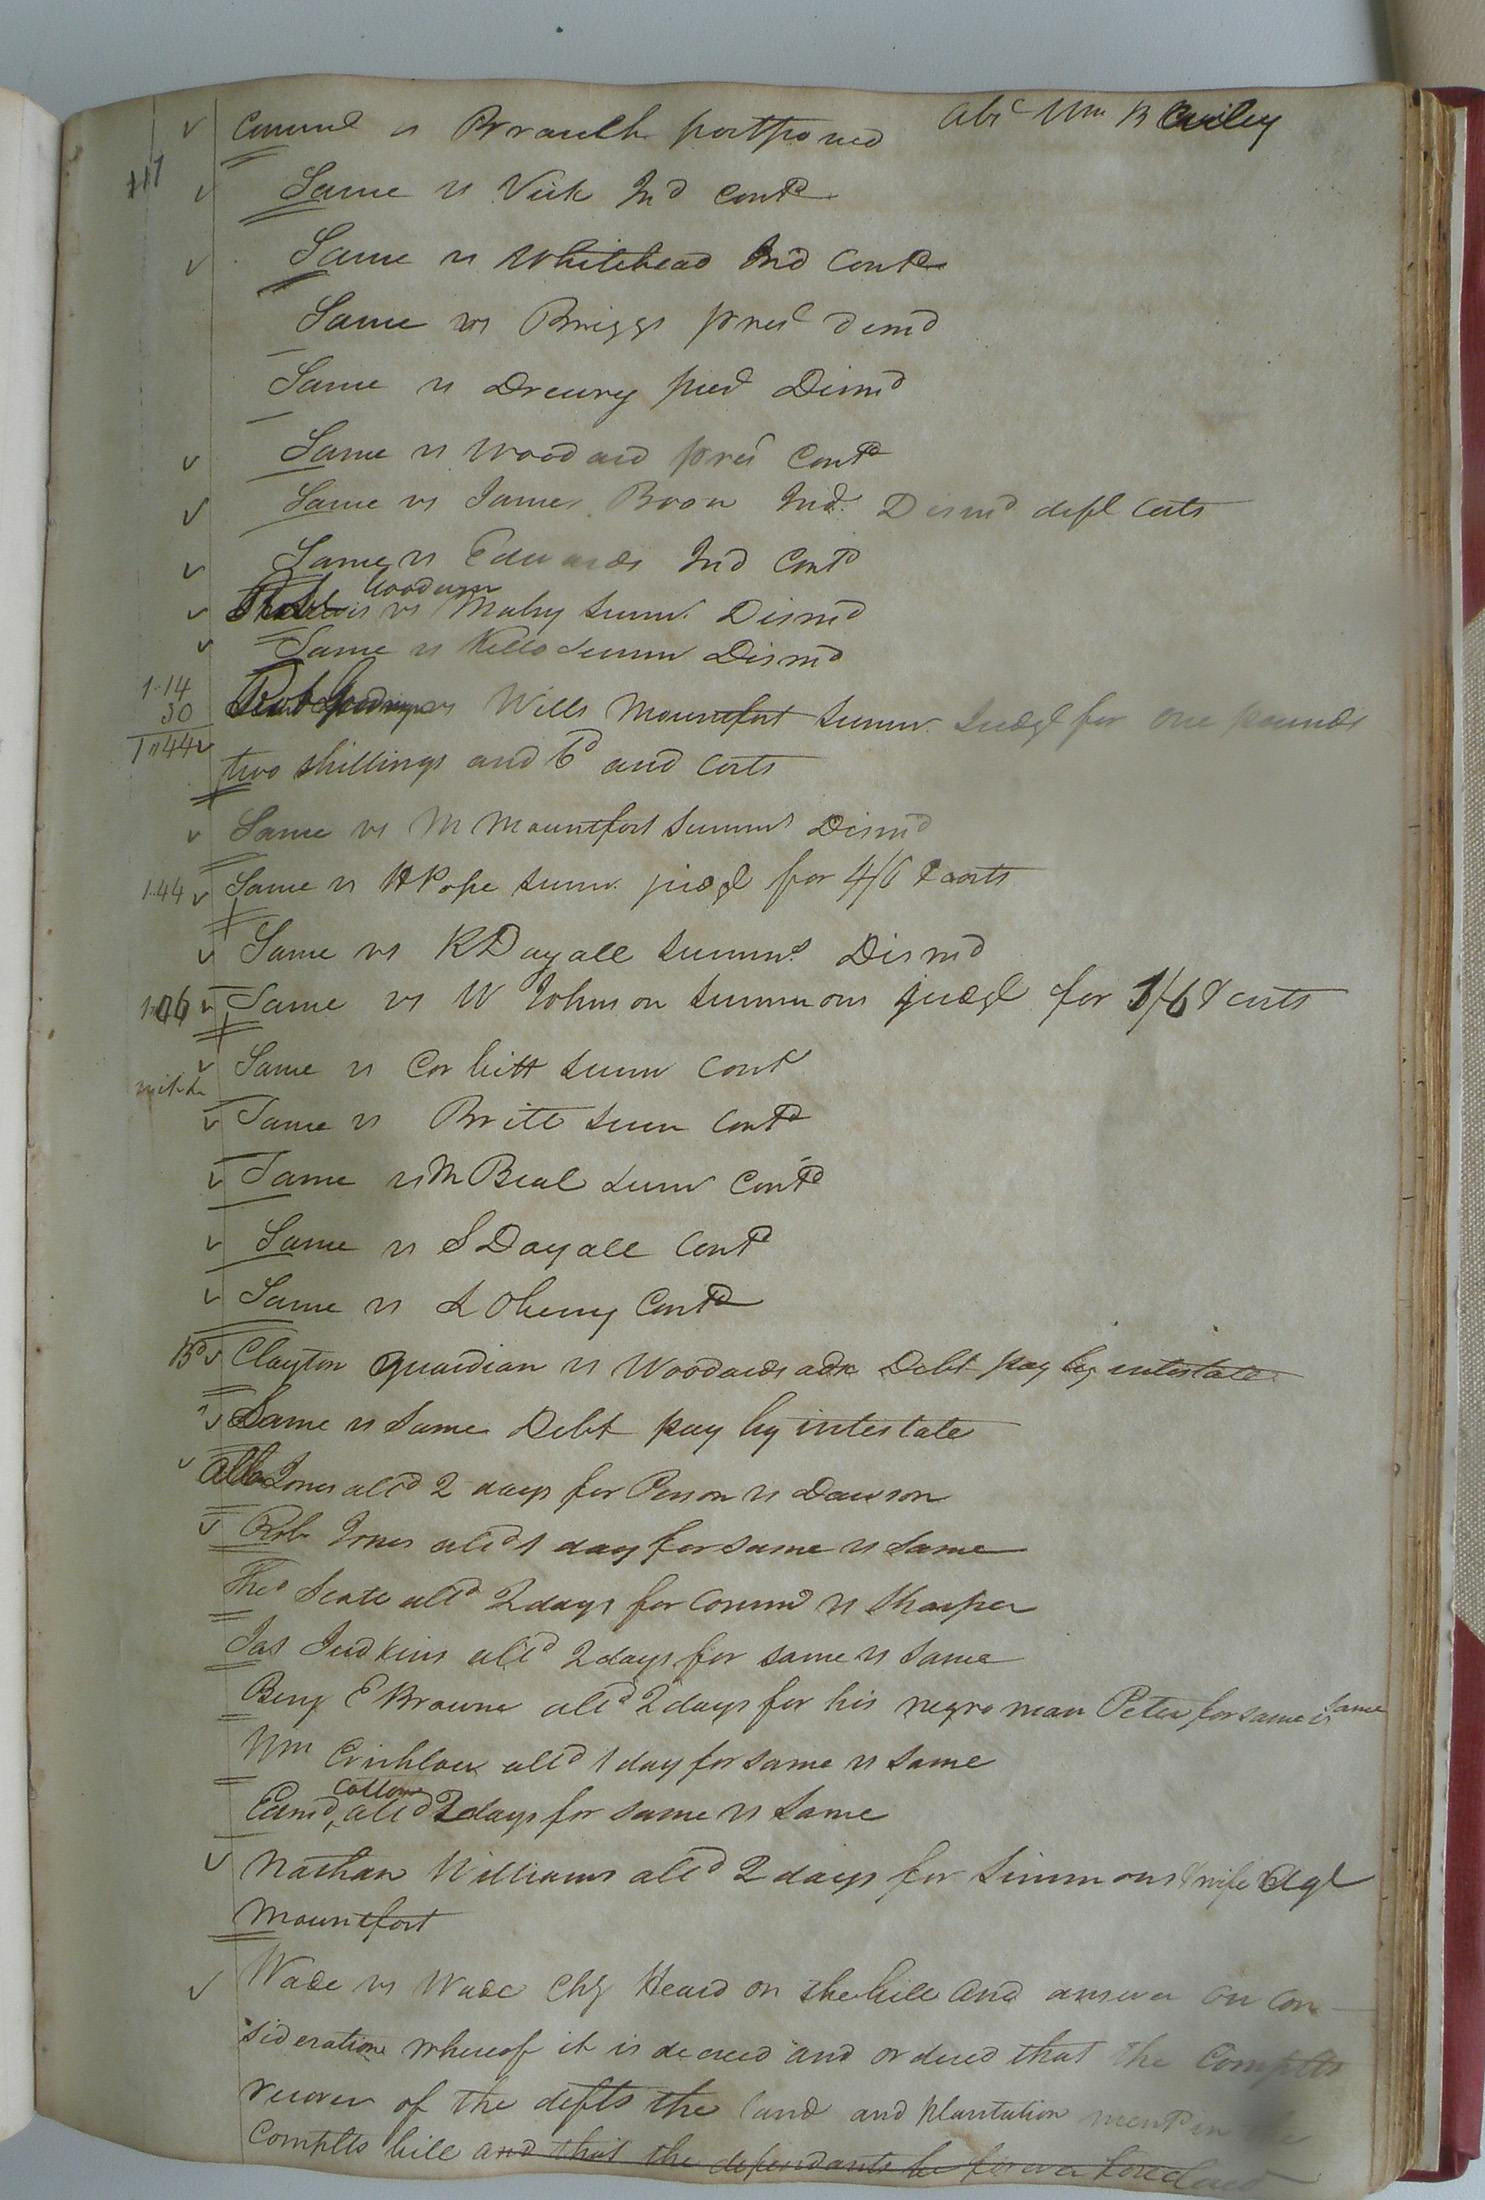 Abst Wm B Cryley
Commd vs Branch postponed
117
Same vs Vick Ind Contd
Same vs Whitehead Ind Contd
Same vs Briggs prest Dismd
Same vs Drewry prest Dismd
Same vs Woodard prest Contd
Same vs James Boon Ind. Dismd deft Costs
Same vs Edwards Ind Contd
vs Maby Summs Dismd
Same vs Kello Summs Dismd
1.14
30
1"44
Goodwyn vs Wills Mountfort Summs Judgt for one pounds
two shillings and 6d and Costs
Same vs M Mountfort Summs Dismd
1.44 Same vs H Pope Summs judgt for 4/6 & Costs
Same vs R Dayall Summs Dismd
Same vs W Johnson Summons judgt for 1/6 & Costs
Same vs Corbitt Summs Contd
Same vs Britt Summ Contd
Same vs M Beal Summ Contd
Same vs S Dayall Contd
Same vs L Oberry Contd
Clayton guardian vs Woodards adx Debt pay by intestate
Same vs Same Debt pay by intestate
Jones attd 2 days for Person vs Dawson
Rob Jones attd 1 day for same vs same
Thos Scate attd 2 days for Commd vs Sharper
Jas Judkins attd 2 days for same vs Same
Benj E Browne attd 2 days for his negro man Peter for same vs same
Wm Crichlow attd 1 day for same vs same
Edmd Cotton attd 2 days for same vs Same
Nathan Williams attd 2 days for Simmons & wife agt
Mountfort
Wade vs Wade Chy Heard on the bill and answer on con-
sideration whereof it is decreed and ordered that the Complts
recover of the defts the land and plantation mentd in the
Complts bill and that the defendants be forever foreclosed